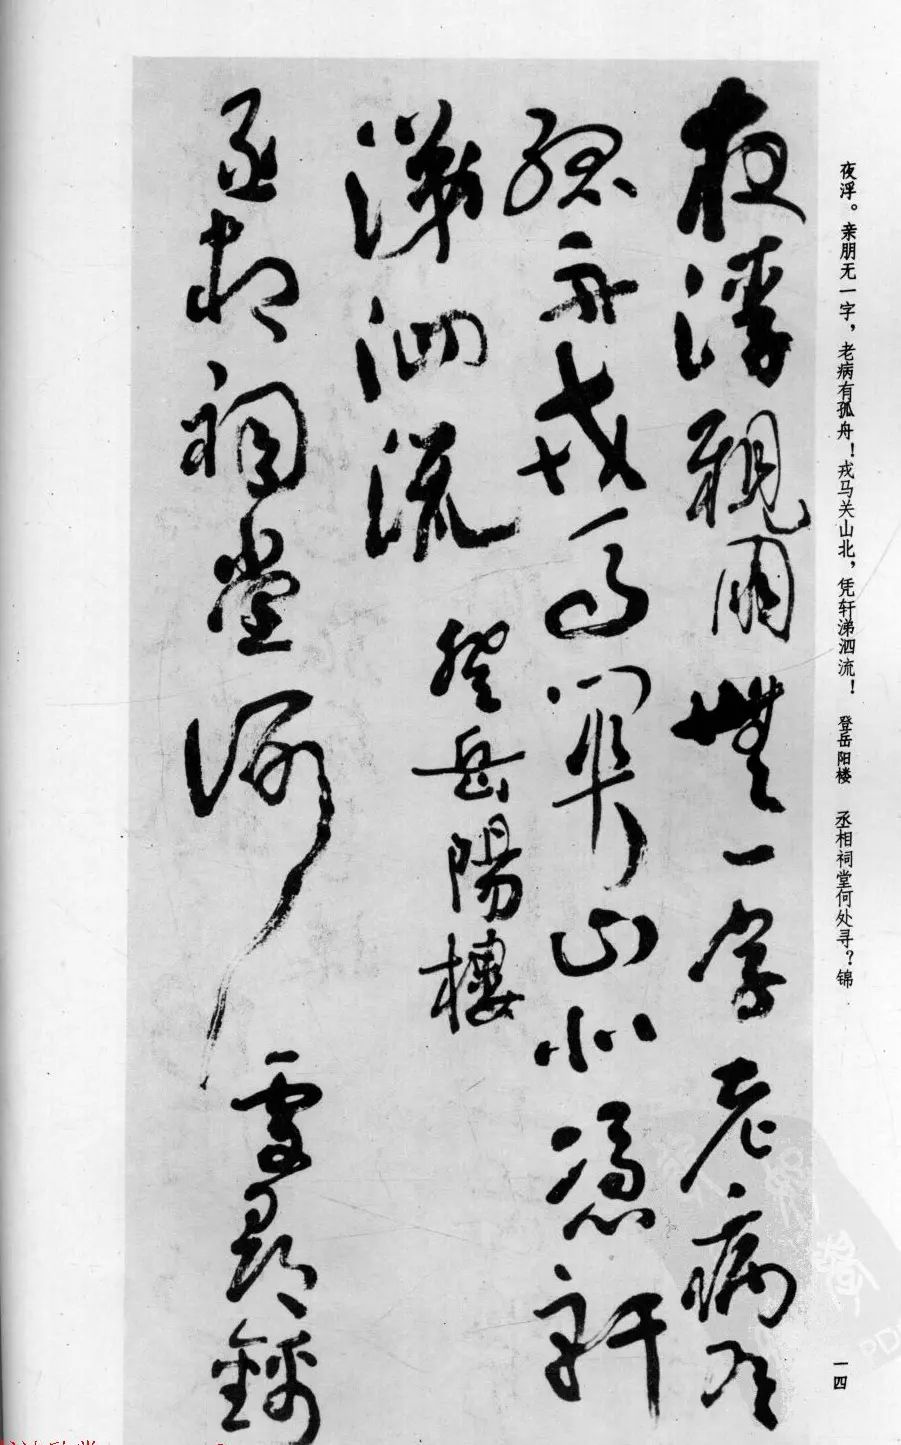 夜浮。亲朋无一字，老病有孤舟！戎马关山北，凭轩涕泗流！ 登岳阳楼 丞相祠堂何处寻？锦
夜浮親朋無一字老病有
孤舟戎馬關山北憑軒
涕泗流
登岳陽樓
丞相祠堂何處尋錦
一四